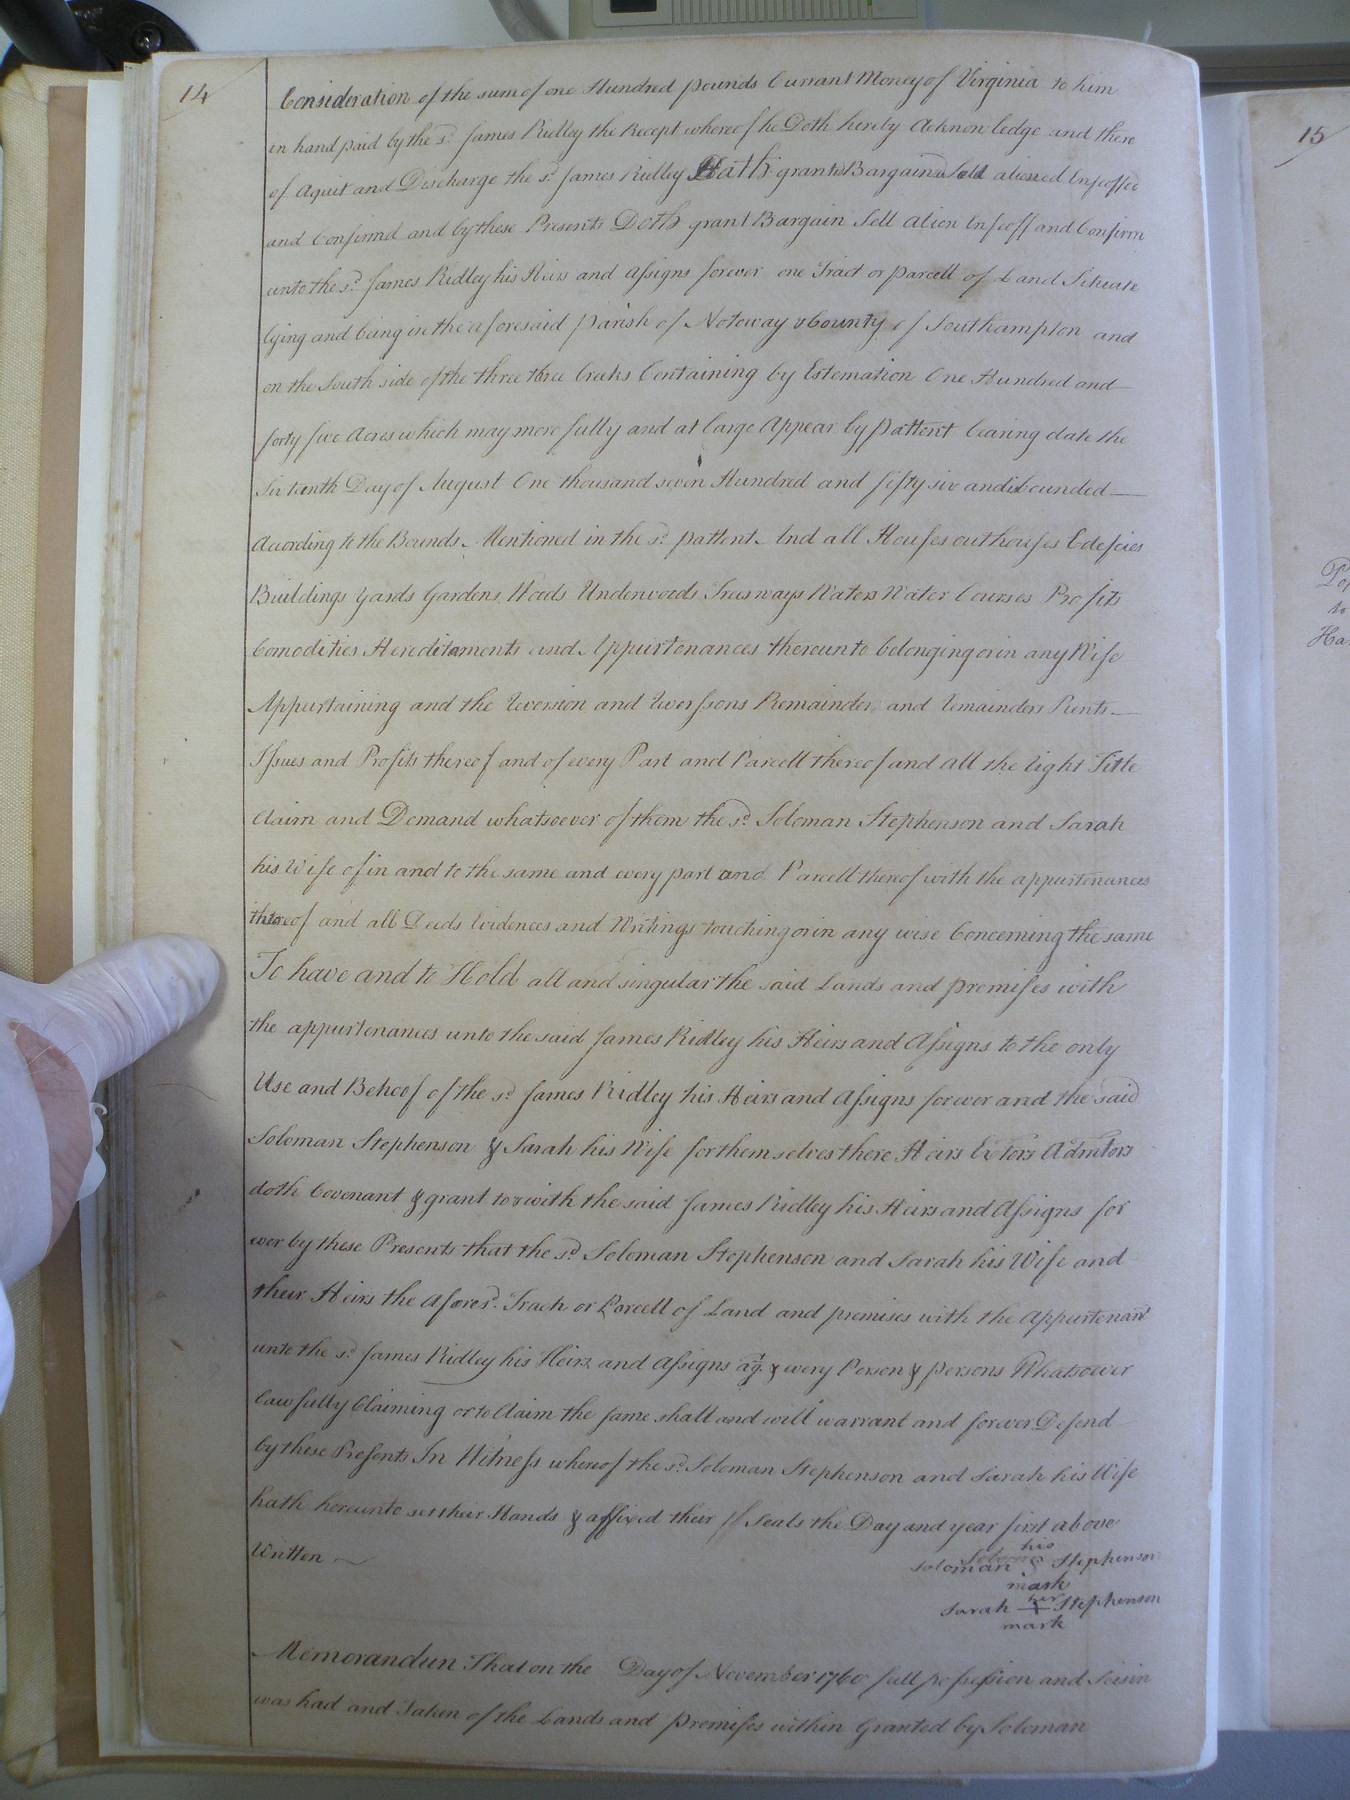 14
Consideration of the sum of one Hundred pounds Currant Money of Virginia to him
in hand paid by the sd. James Ridley the Recept whereof he Doth hereby Acknowledge and there
of Aquit and Discharge the sd. James Ridley Hath granted Bargaind Sold aliened Infeoffed
and Confirmd and by these Presents Doth grant Bargain Sell alien Infeoff and Confirm
unto the sd. James Ridley his Heirs and assigns forever one Tract or parcell of Land Situate
lying and being in the aforesaid parish of Notoway & County of Southampton and
on the South side of the three three Creeks Containing by Estemation One Hundred and
forty five Acres which may more fully and at large Appear by pattent bearing date the
Sixteenth Day of August One thousand seven Hundred and fifty six and is bounded
According to the Bounds Mentioned in the sd. pattent And all Houses outhouses Edefices
Buildings Yards Gardens Woods Underwoods Trees ways Waters Water Courses Profits
Comodities Hereditaments and Appurtenances thereunto belonging or in any Wise
Appurtaining and the Reversion and Reverssons Remainder and Remainders Rents
Issues and Profits thereof and of every Part and Parcell thereof and all the Right Title
Claim and Demand whatsoever of them the sd. Soloman Stephenson and Sarah
his Wife of in and to the same and every part and Parcell thereof with the appurtenances
thereof and all Deeds Evidences and Writings touching or in any wise Concerning the same
To have and to Hold all and singular the said Lands and premises with
the appurtenances unto the said James Ridley his Heirs and Assigns to the only
Use and Behoof of the sd. James Ridley his Heirs and Assigns forever and the said
Soloman Stephenson & Sarah his Wife for themselves there Heirs Extors Admtors
doth Covenant & grant to & with the said James Ridley his Heirs and Assigns for
ever by these Presents that the sd. Soloman Stephenson and Sarah his Wife and
their Heirs the Afores.d Track or Parcell of Land and premises with the Appurtenan
unto the sd. James Ridley his Heirs and Assigns ag.t & every Person & persons Whatsoever
lawfully Claiming or to Claim the same shall and will warrant and forever Defend
by these Presents In Witness whereof the sd. Soloman Stephenson and Sarah his Wife
hath hereunto set their Hands & affixed their Seals the Day and year first above
Written
his
Soloman Stephenson
mark
her
Sarah + Stephenson
mark
Memorandum That on the Day of November 1760 full possession and Seisin
was had and Taken of the Lands and premises within Granted by Soloman
15
to
Ha